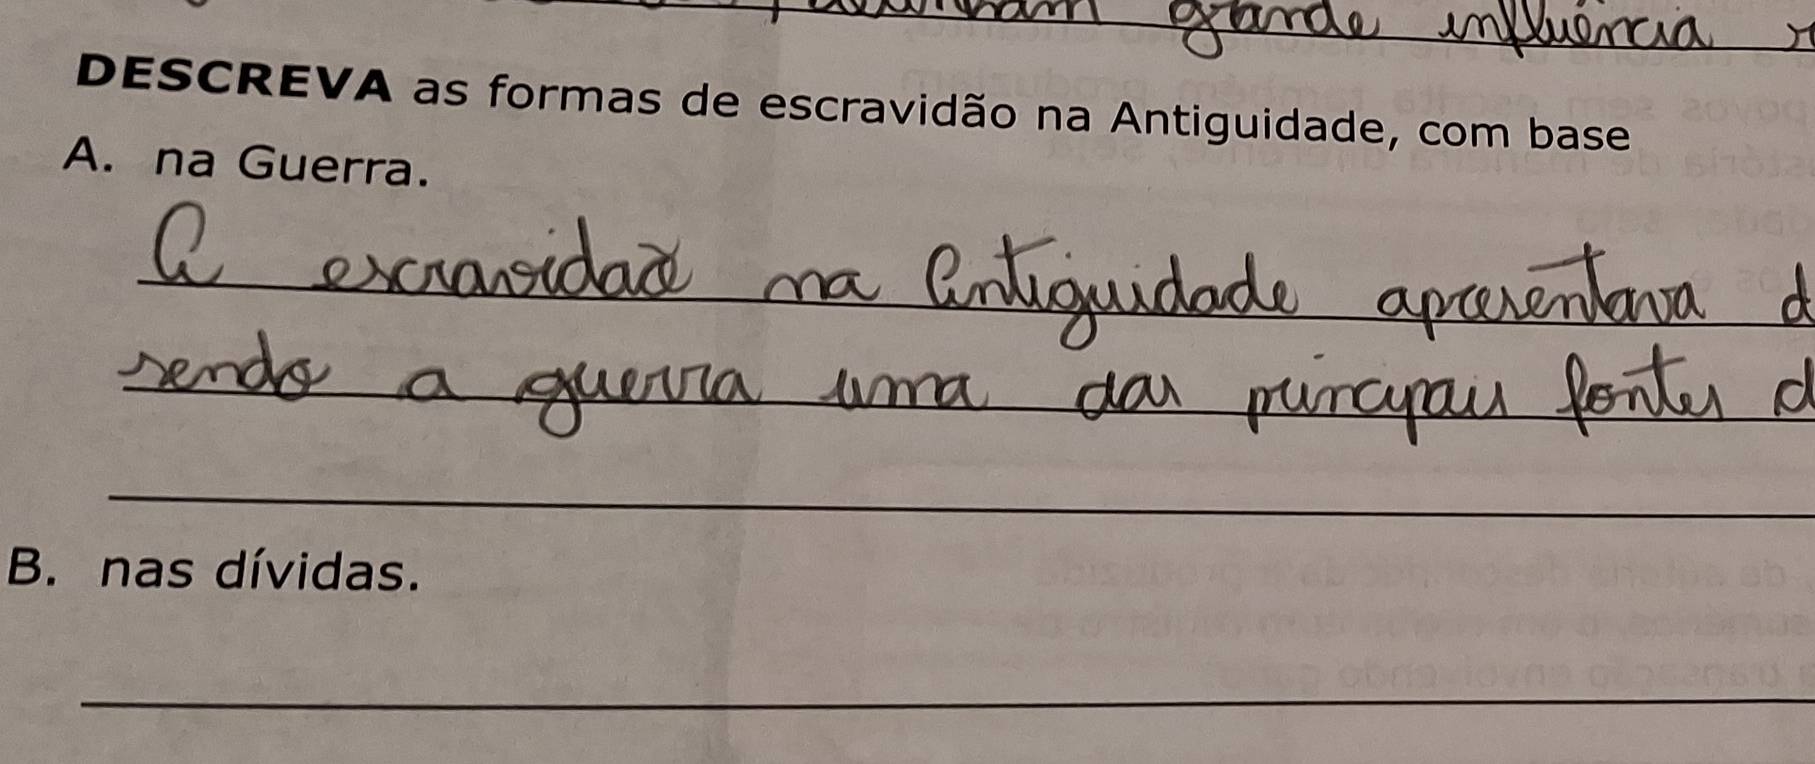 grande influência
DESCREVA as formas de escravidão na Antiguidade, com base
A. na Guerra.
A escravidão na Antiguidade apresentava d
sendo a guerra uma das principais fontes d
B. nas dívidas.